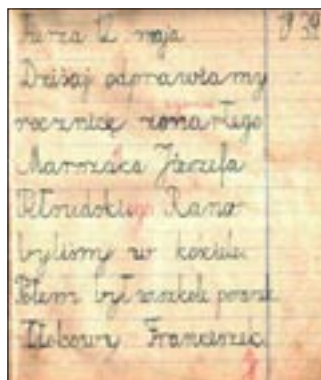 12 maja
Dzisiaj odprawiamy
rocznicę zmarłego
Marszałka Józefa
Piłsudskiego Rano
byliśmy w kościele.
Potem był w szkole
Franciszek